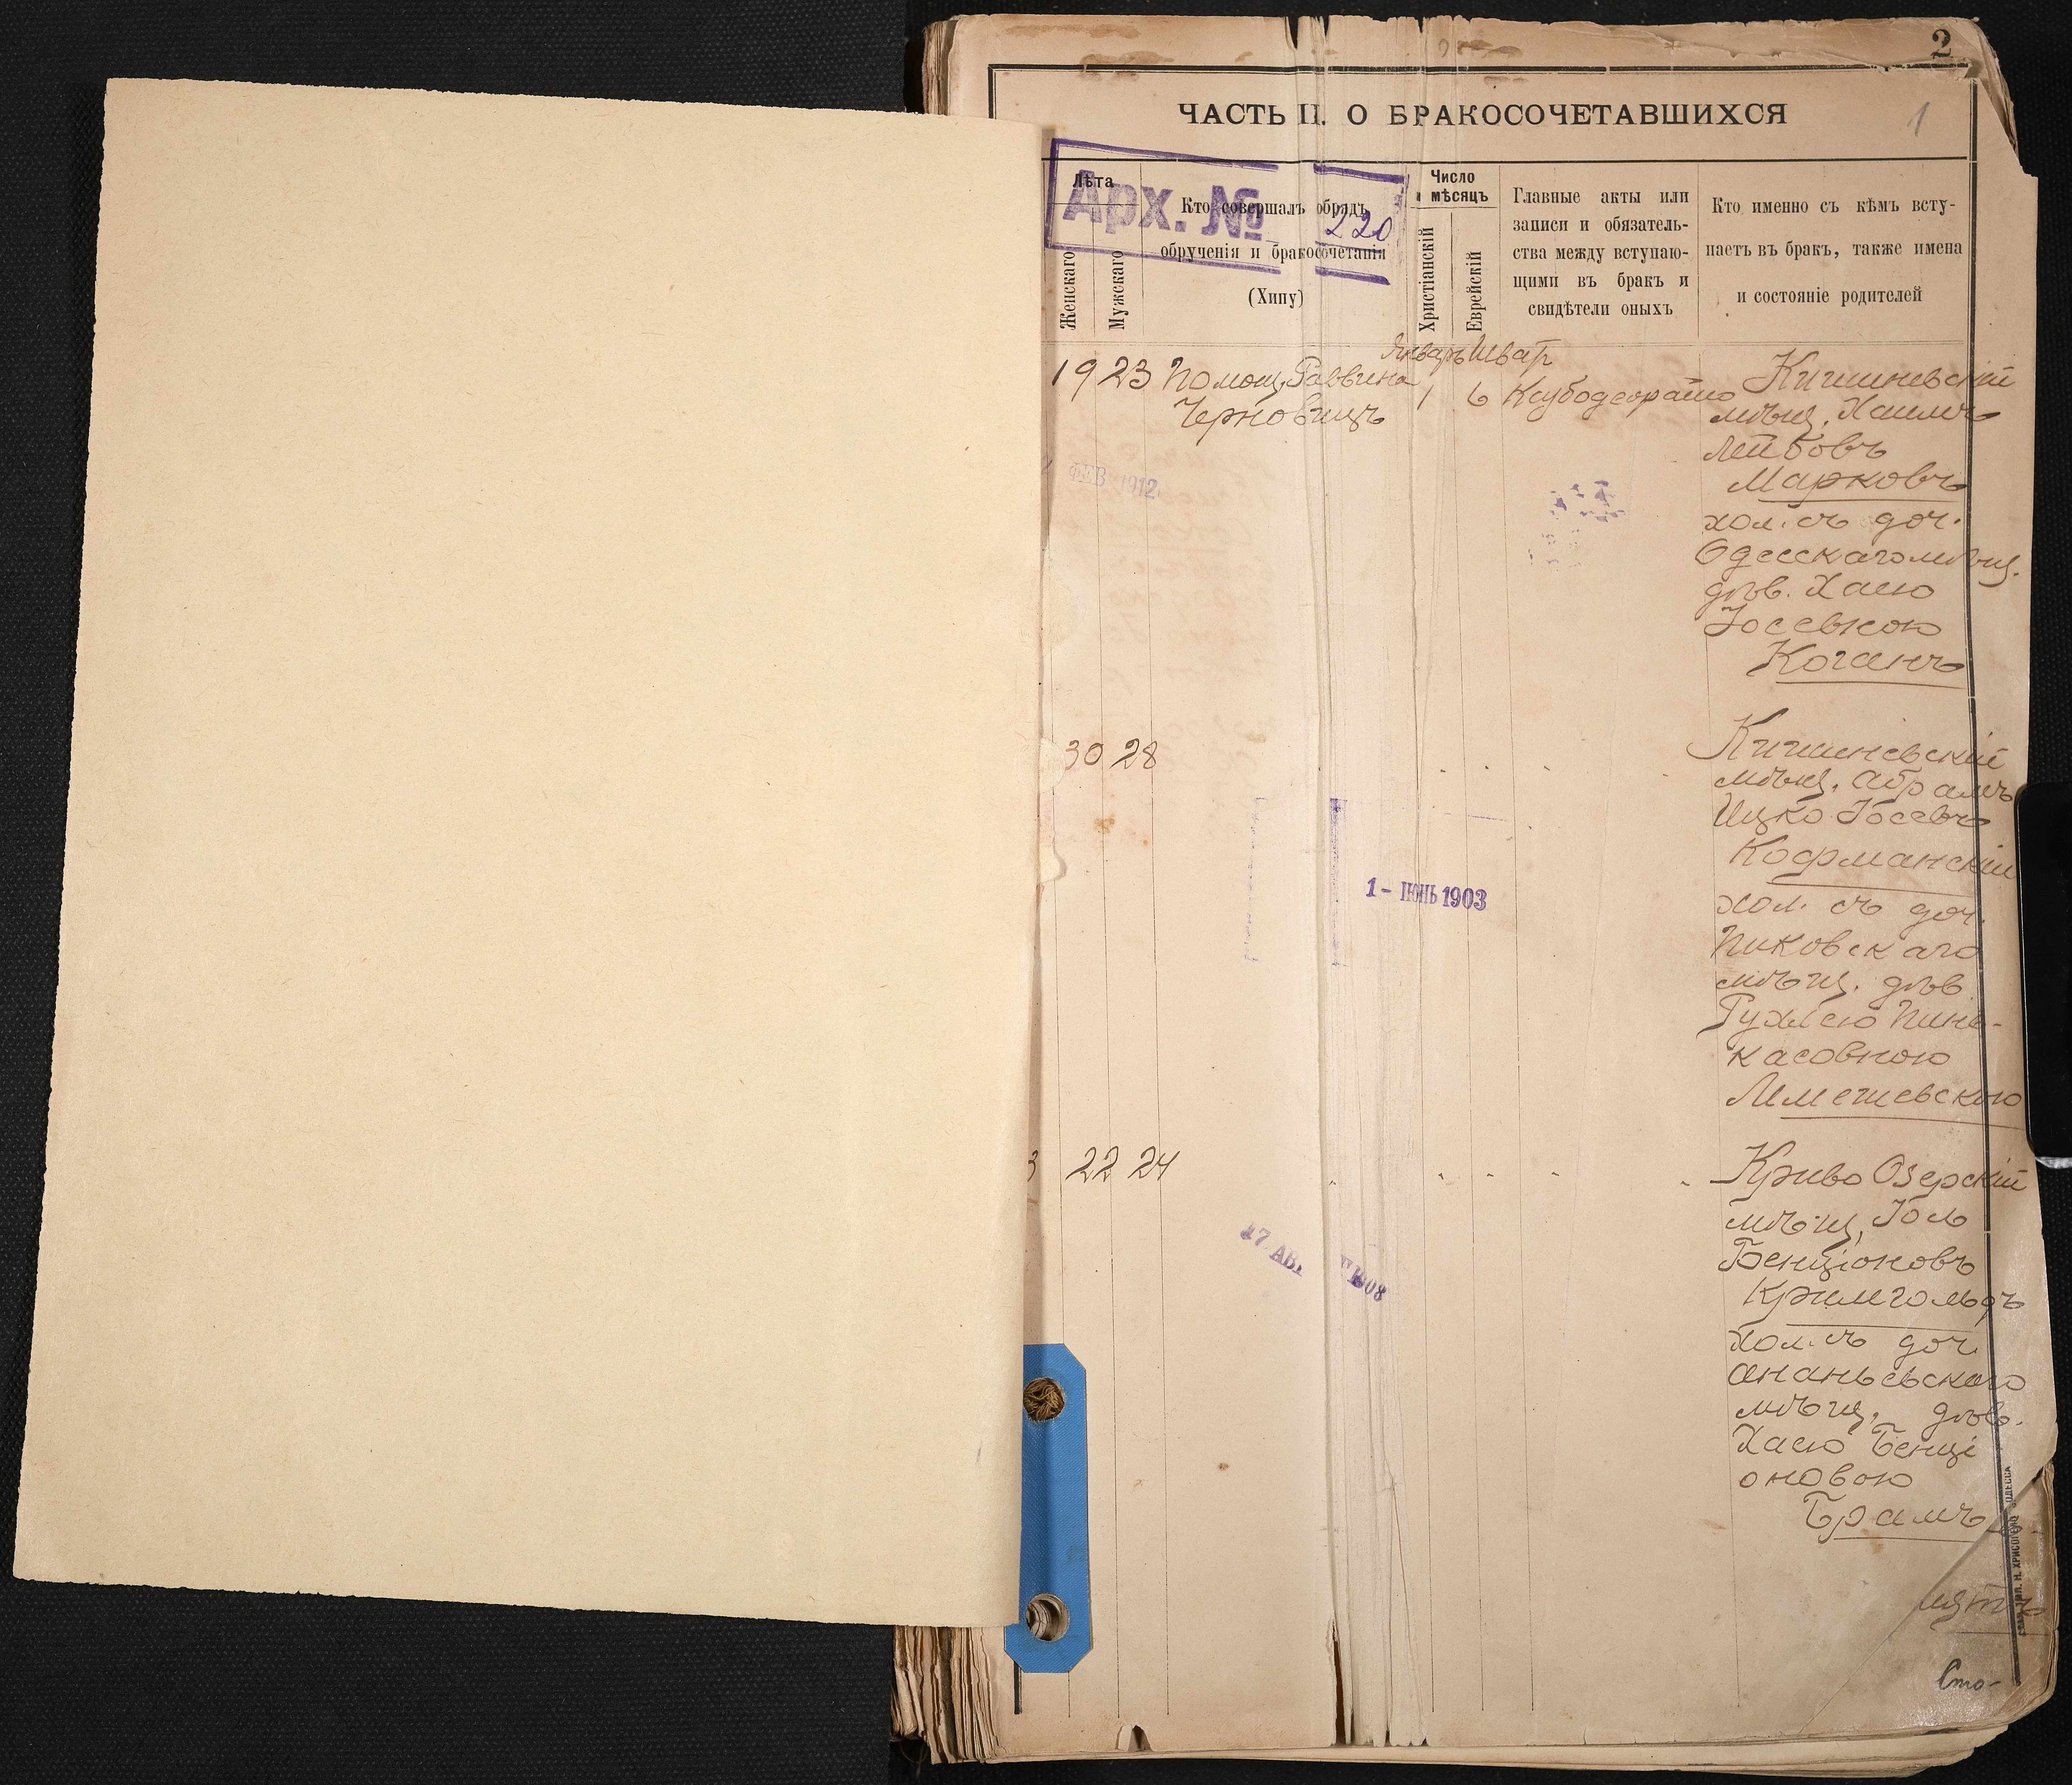 2
1
ЧАСТЬ II. О БРАКОСОЧЕТАВШИХСЯ
Лѣта
Женскаго
Мужскаго
Арх. № 220
Кто совершалъ обрядъ
обрученія и бракосочетанія
(Хипу)
Число
и мѣсяцъ
Христіанскій
Еврейскій
Главные акты или
записи и обязатель-
ства между вступаю-
щими въ бракъ и
свидѣтели оныхъ
Кто именно съ кѣмъ всту-
паетъ въ бракъ, также имена
и состояніе родителей
Январь Шватъ
19 23 Помощ. Раввина 1 6
Черновицъ
Кишиневскій
мѣщ. Хаимъ
Лейбовъ
Марковъ
хол. съ доч.
Одесскаго мѣщ.
дѣв. Хаею
Іосевною
Коганъ
ФЕВ 1912
30 28
Кишиневскій
мѣщ. Абрамъ
Ицко Іосевъ
Кофманскій
хол. съ доч.
Пиковскаго
мѣщ. дѣв.
Рухлею Пинь-
касовною
1 - ІЮНЬ 1903
3 22 24
Криво Озерскій
мѣщ. Іоль
Бенціоновъ
Кримгольдъ
хол. съ доч.
Ананьевскаго
мѣщ. дѣв.
Хаею Бенці
оновою
Брамъ
17 АВГ 1908
Сто-